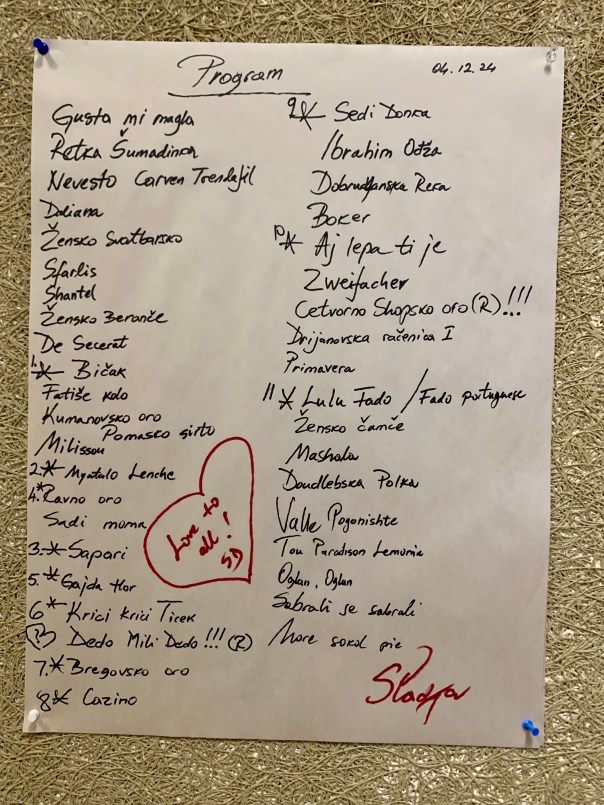 Program
04.12.24
Gusta mi magla
Retka Šumadinka
Nevesto Carven Trendafil
Daliana
Žensko Svatbarsko
Sfarlis
Shantel
Žensko Beranče
De Secerat
1.* Bičak
Fatiše kolo
Kumanovsko oro
Pomasko sirto
Milissou
2.* Myatalo Lenche
4.* Ravno oro
Sadi moma
3.* Sapari
5.* Gajda Hor
6* Krici krici Ticek
Dedo Mili Dedo!!! (R)
7.* Bregovsko oro
8* Cazino
Love to
all!
SD
9* Sedi Donka
Ibrahim Odža
Dobrudjanska Reka
Boker
10* Aj lepa ti je
Zweifacher
Cetvorno Shopsko oro (R)!!!
Drijanovska račenica I
Primavera
11* Lulu Fado / Fado portugnese
Žensko čamče
Mashala
Doudlebska Polka
Valle Pogonishte
Tou Paradison Lemonia
Oglan, Oglan
Sobrali se sobrali
More sokol pie